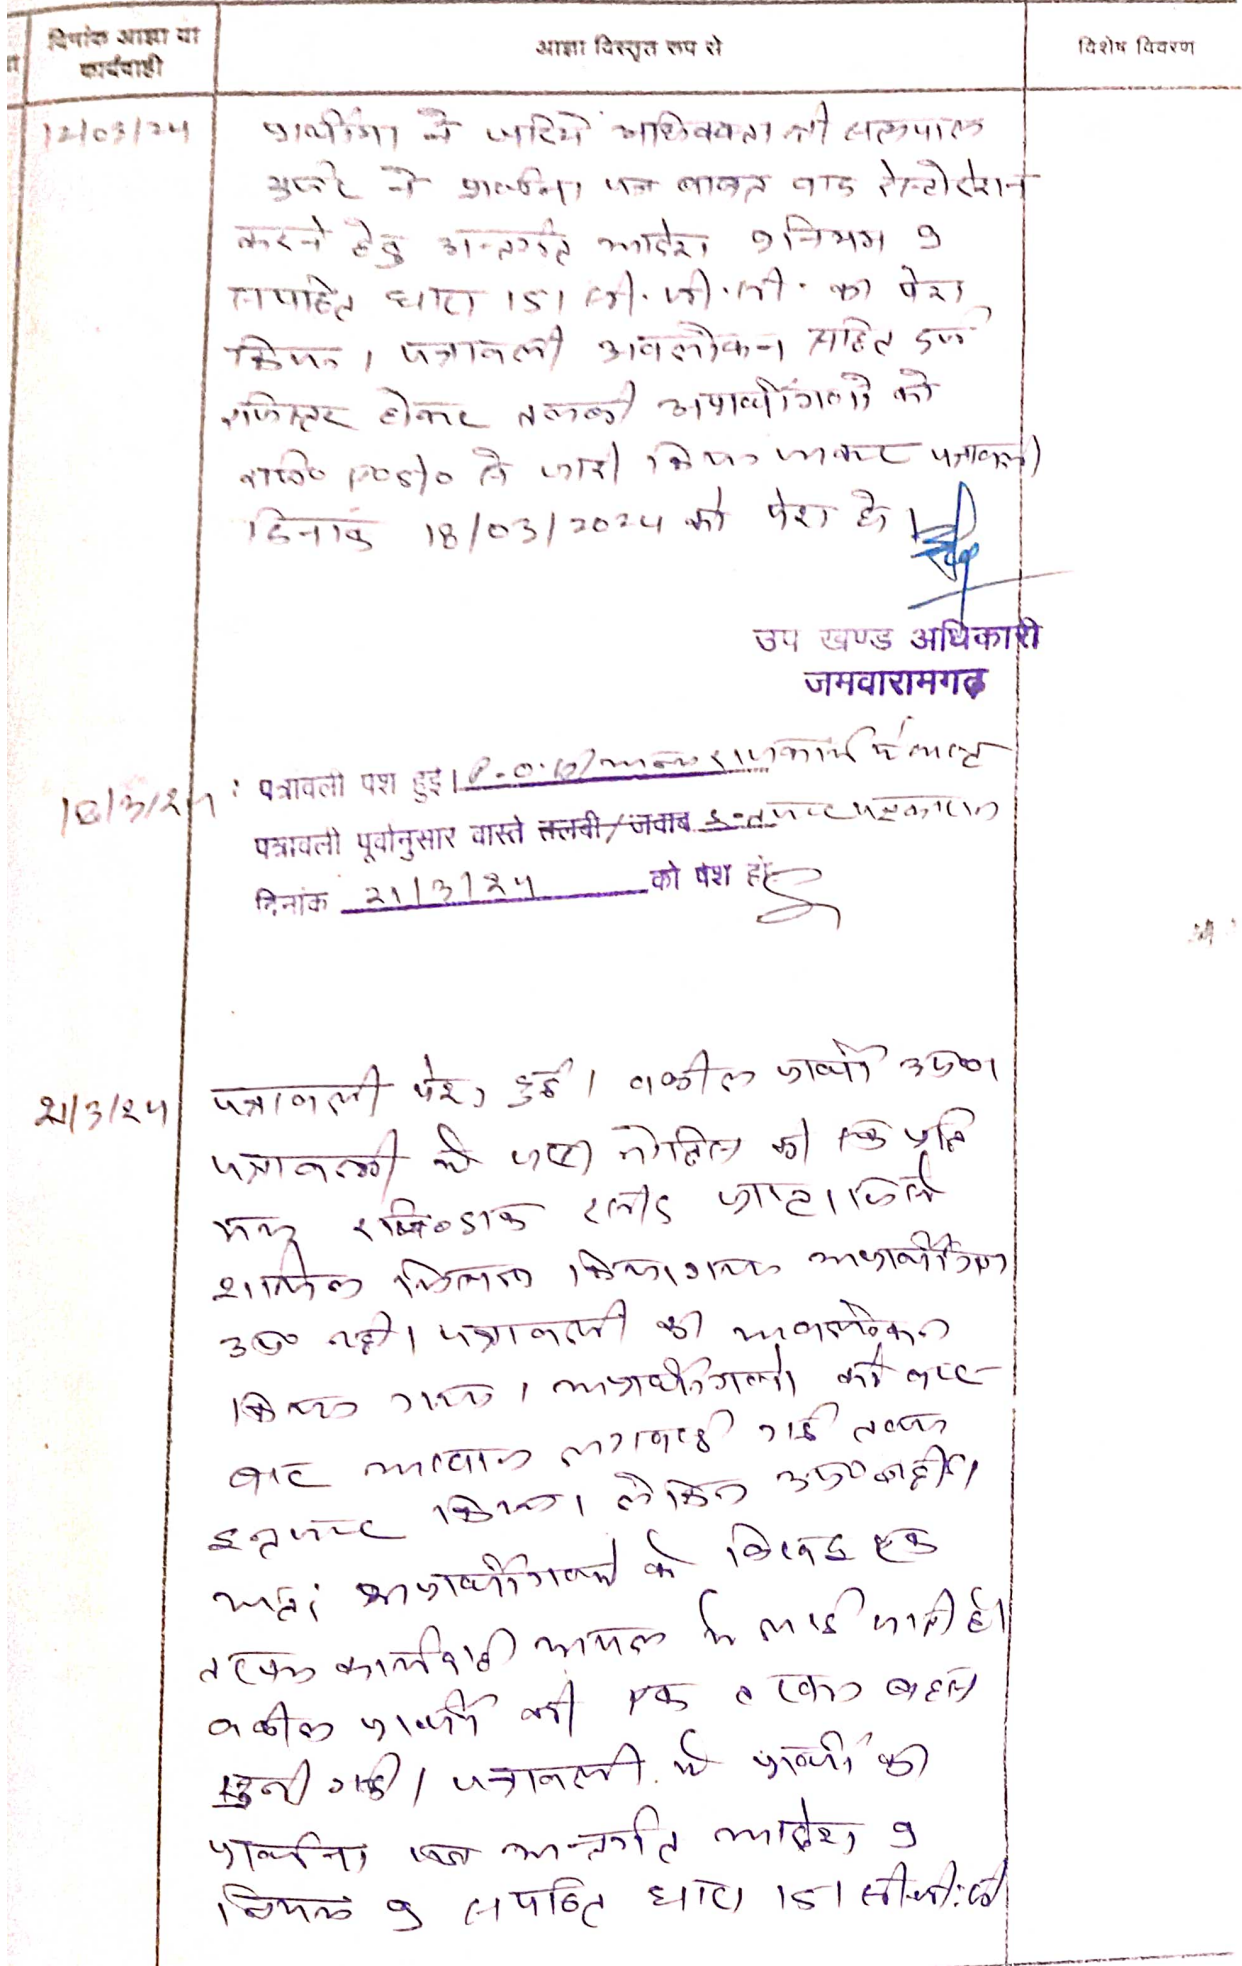 दिनांक आज्ञा या
कार्यवाही
आज्ञा विस्तृत रूप से
विशेष विवरण
12/03/24
प्रार्थीगण ने जरिये अधिवक्ता श्री
गुर्जर ने प्रार्थना पत्र बाबत वाद रेस्टोरेशन
करने हेतु अन्तर्गत आदेश 9 नियम 9
सपठित धारा 151 सी.पी.सी. का पेश
किया। पत्रावली अवलोकन सहित दर्ज
रजिस्टर होकर तलबी अप्रार्थीगणों को
रजि० से जारी किया जाकर पत्रावली
दिनांक 18/03/2024 को पेश हो
उप खण्ड अधिकारी
जमवारामगढ़
18/3/24
पत्रावली पेश हुई। P.O. अन्य राजकार्य में व्यस्त
पत्रावली पूर्वानुसार वास्ते तलबी/जवाब इन्तजार
दिनांक 21/3/24 को पेश हो
21/3/24
पत्रावली पेश हुई। वकील प्रार्थी उप०।
पत्रावली में नोटिस की एक प्रति
मय रजि० डाक रसीद प्राप्त। जिसे
शामिल मिसल किया गया अप्रार्थीगण
उप० नहीं। पत्रावली का अवलोकन
किया गया। अप्रार्थीगणों को बार-
बार आवाज लगवाई गई तथा
इन्तजार किया। लेकिन उप० नहीं।
अतः अप्रार्थीगणों के विरुद्ध एक
तरफा कार्यवाही अमल में लाई जाती है।
वकील प्रार्थी की एक तरफा बहस
सुनी गई। पत्रावली में प्रार्थी का
प्रार्थना पत्र अन्तर्गत आदेश 9
नियम 9 सपठित धारा 151 सी.पी.सी